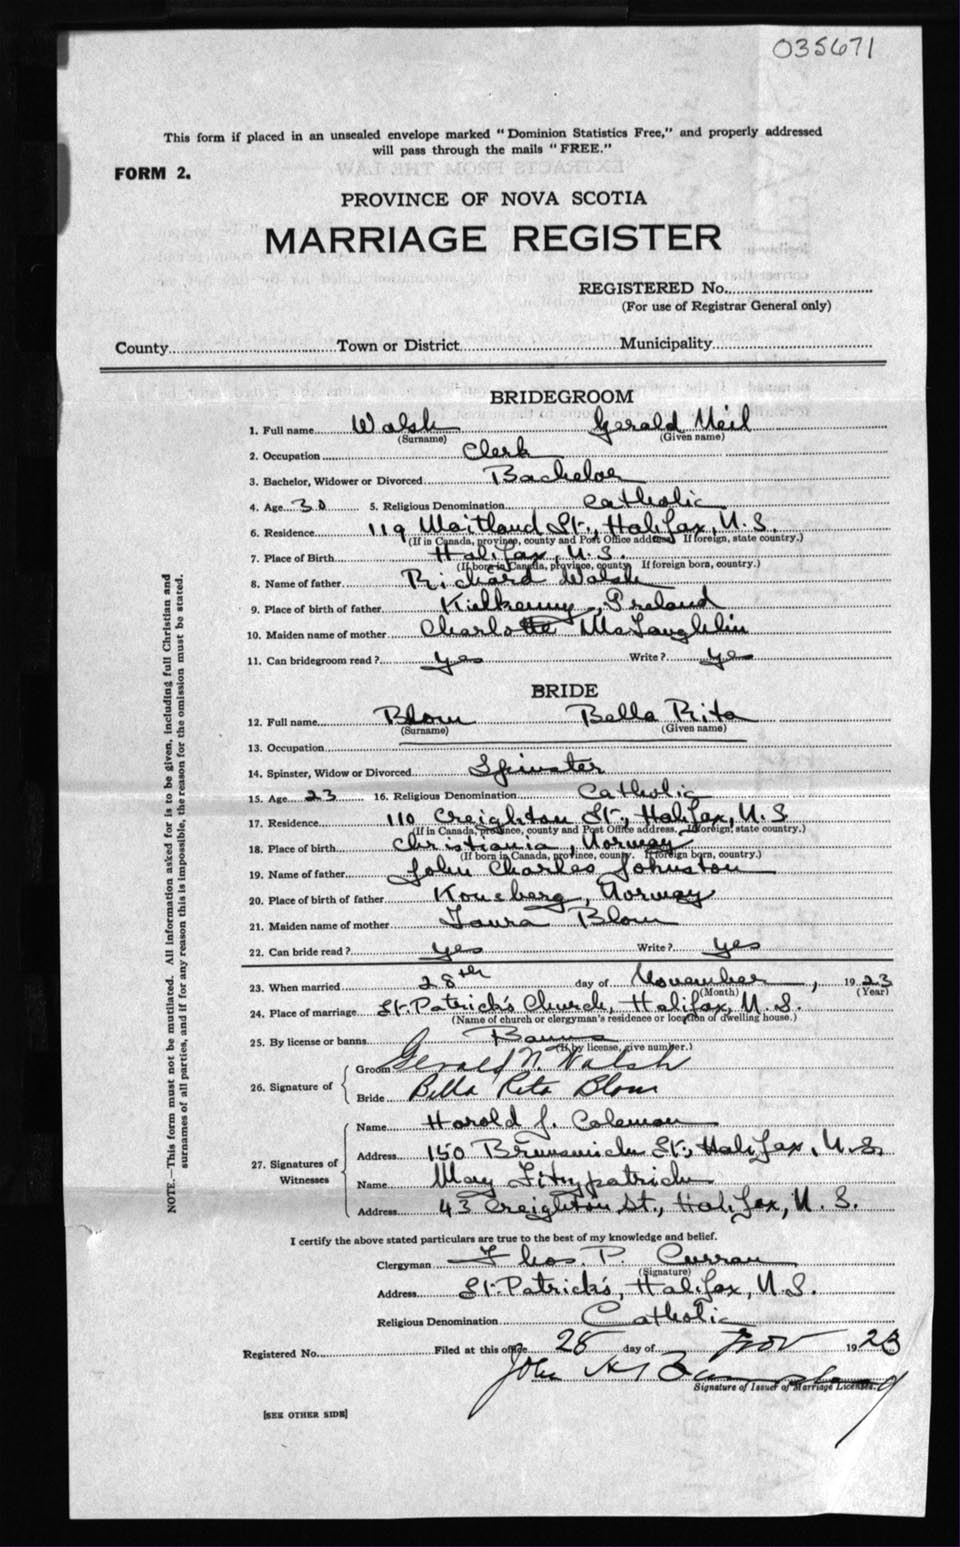 035671
This form if placed in an unsealed envelope marked "Dominion Statistics Free," and properly addressed
will pass through the mails "FREE."
FORM 2.
PROVINCE OF NOVA SCOTIA
MARRIAGE REGISTER
REGISTERED No.
(For use of Registrar General only)
County Town or District Municipality
BRIDEGROOM
1. Full name Walsh Gerald Neil
(Surname) (Given name)
2. Occupation Clerk
3. Bachelor, Widower or Divorced Bachelor
4. Age 30 5. Religious Denomination Catholic
6. Residence 119 Maitland St., Halifax, N.S.
(If in Canada, province, county and Post Office address. If foreign, state country.)
7. Place of Birth Halifax, N.S.
(If born in Canada, province, county. If foreign born, country.)
8. Name of father Richard Walsh
9. Place of birth of father Kielkenny, Ireland
10. Maiden name of mother Charlotte McLaughlin
11. Can bridegroom read? yes Write? yes
BRIDE
12. Full name Blom Bella Rita
(Surname) (Given name)
13. Occupation
14. Spinster, Widow or Divorced Spinster
15. Age 23 16. Religious Denomination Catholic
17. Residence 110 Creighton St., Halifax, N.S
(If in Canada, province, county and Post Office address. If foreign, state country.)
18. Place of birth Christiania, Norway
(If born in Canada, province, county. If foreign born, country.)
19. Name of father John Charles Johnston
20. Place of birth of father Norway
21. Maiden name of mother Laura Blom
22. Can bride read? yes Write? yes
23. When married 28th day of November, 1923
(Month) (Year)
24. Place of marriage St. Patrick's Church, Halifax, N.S.
(Name of church or clergyman's residence or location of dwelling house.)
25. By license or banns Banns
(If by license, give number.)
26. Signature of
Groom Gerald N. Walsh
Bride Bella Rita Blom
27. Signatures of Witnesses
Name Harold J. Coleman
Address 150 Brunswick St., Halifax, N.S.
Name May Fitzpatrick
Address 43 Creighton St., Halifax, N.S.
I certify the above stated particulars are true to the best of my knowledge and belief.
Clergyman Thos. P. Curran
(Signature)
Address St. Patrick's, Halifax, N.S.
Religious Denomination Catholic
Registered No. Filed at this office 28 day of Nov 1923
John
Signature of Issuer of Marriage Licenses.
[SEE OTHER SIDE]
NOTE.—This form must not be mutilated. All information asked for is to be given, including full Christian and
surnames of all parties, and if for any reason this is impossible, the reason for the omission must be stated.